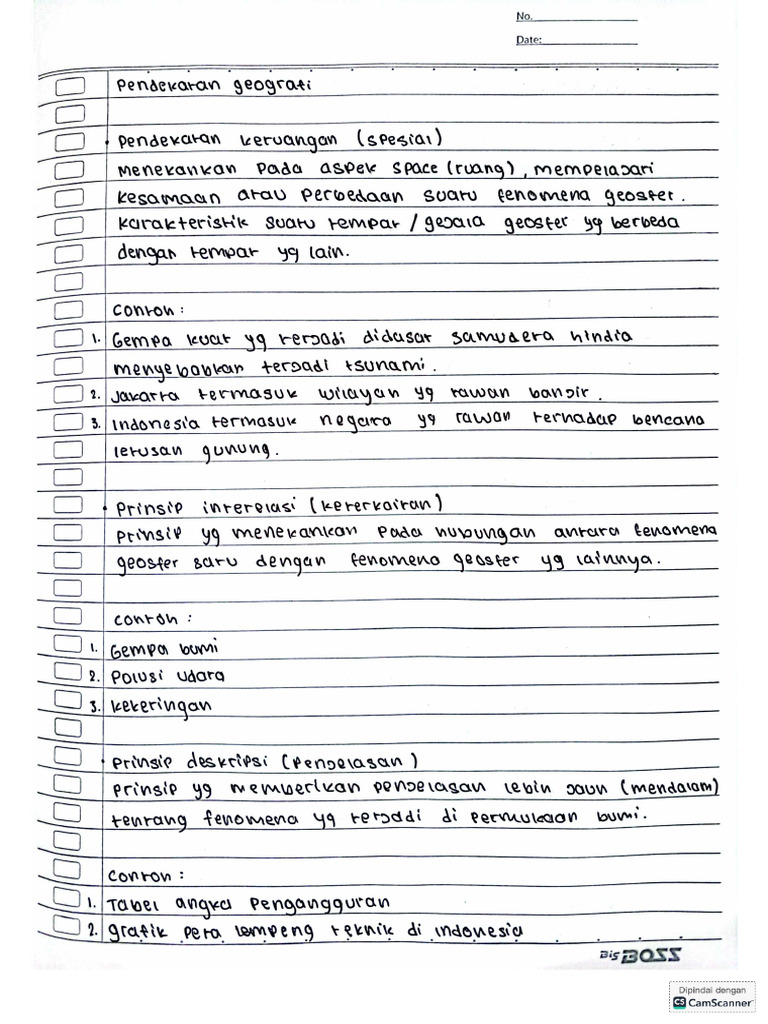 No.
Date:
Pendekatan geografi
• Pendekatan keruangan (spesial)
menekankan pada aspek space (ruang), mempelajari
kesamaan atau perbedaan suatu fenomena geosfer.
karakteristik suatu tempat / gejala geosfer yg berbeda
dengan tempat yg lain.
contoh :
1. Gempa kuat yg terjadi didasar samudera hindia
menyebabkan terjadi tsunami.
2. Jakarta termasuk wilayah yg rawan banjir.
3. Indonesia termasuk negara yg rawan terhadap bencana
letusan gunung.
• Prinsip interelasi (keterkaitan)
prinsip yg menekankan pada hubungan antara fenomena
geosfer satu dengan fenomena geosfer yg lainnya.
contoh :
1. Gempa bumi
2. Polusi udara
3. kekeringan
• Prinsip deskripsi (penjelasan)
prinsip yg memberikan penjelasan lebih jauh (mendalam)
tentang fenomena yg terjadi di permukaan bumi.
contoh :
1. Tabel angka pengangguran
2. grafik peta lempeng teknik di indonesia
Big BOSS
Dipindai dengan
CS CamScanner